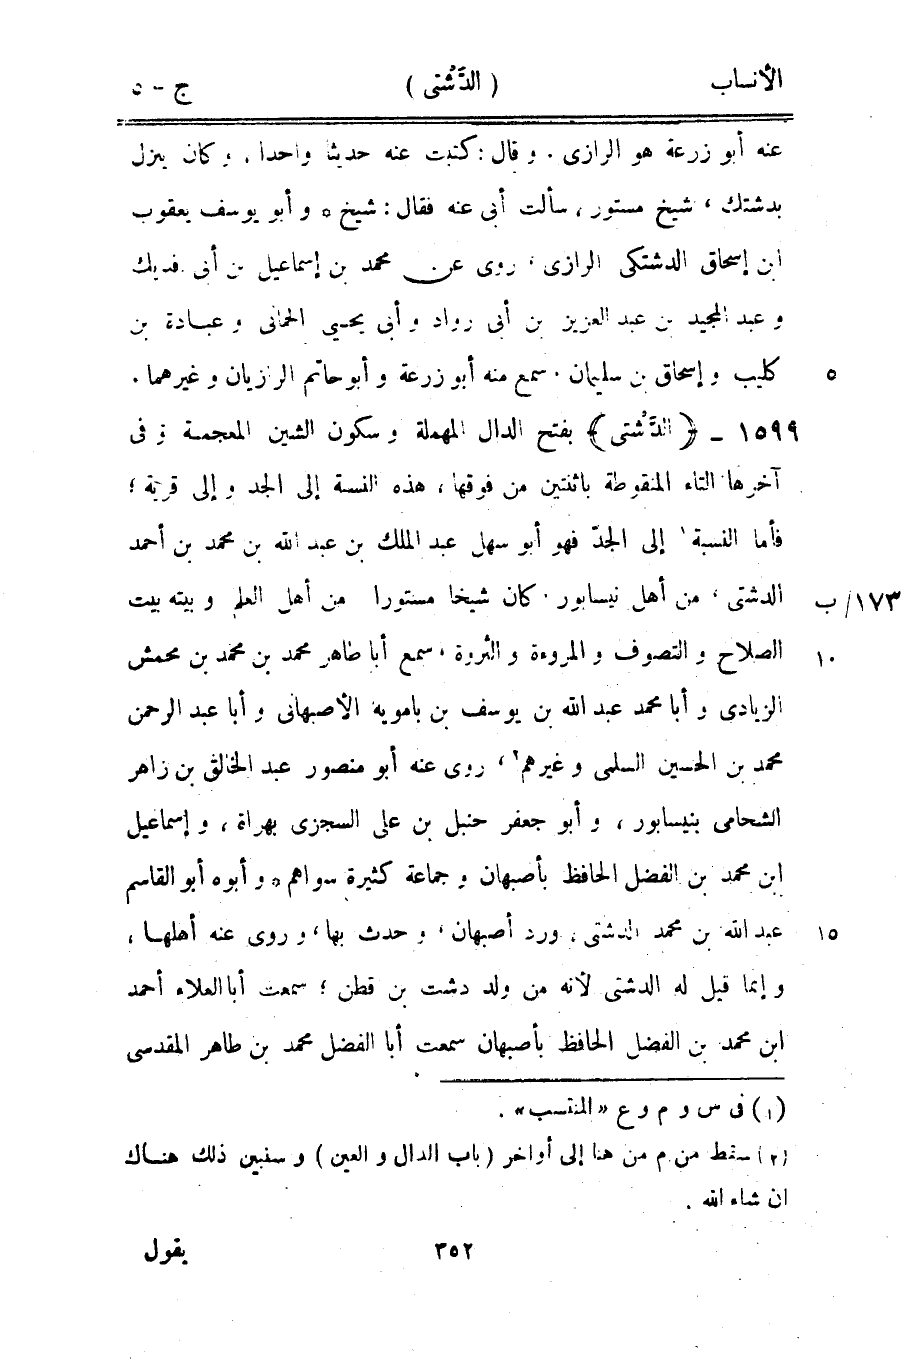 الأنساب ( الدَّشْتى ) ج - ٥
عنه أبو زرعة هو الرازى . و قال : كتبت عنه حديثا واحدا ، و كان ينزل
بدشتك ، شيخ مستور ، سألت أبى عنه فقال : شيخ ه و أبو يوسف يعقوب
ابن إسحاق الدشتكى الرازى ، روى عن محمد بن إسماعيل بن أبى فديك
و عبد المجيد بن عبد العزيز بن أبى رواد و أبى يحيى الحمانى و عبادة بن
كليب و إسحاق بن سليمان . سمع منه أبو زرعة و أبو حاتم الرازيان و غيرهما . ٥
١٥٩٩ - ﴿ الدَّشْتى ﴾ بفتح الدال المهملة و سكون الشين المعجمة و فى
آخرها التاء المنقوطة باثنتين من فوقها ، هذه النسبة إلى الجد و إلى قرية ؛
فأما النسبة ١ إلى الجدّ فهو أبو سهل عبد الملك بن عبد الله بن محمد بن أحمد
الدشتى ، من أهل نيسابور . كان شيخا مستورا من أهل العلم و بيته بيت ١٧٣/ ب
الصلاح و التصوف و المروءة و الثروة ، سمع أبا طاهر محمد بن محمد بن محمش ١٠
الزيادى و أبا محمد عبد الله بن يوسف بن بامويه الأصبهانى و أبا عبد الرحمن
محمد بن الحسين السلمى و غيرهم ٢ ، روى عنه أبو منصور عبد الخالق بن زاهر
الشحامى بنيسابور ، و أبو جعفر حنبل بن على السجزى بهراة ، و إسماعيل
ابن محمد بن الفضل الحافظ بأصبهان و جماعة كثيرة سواهم ه و أبوه أبو القاسم
عبد الله بن محمد الدشتى ، ورد أصبهان ، و حدث بها ، و روى عنه أهلها ، ١٥
و إنما قيل له الدشتى لأنه من ولد دشت بن قطن ؛ سمعت أبا العلاء أحمد
ابن محمد بن الفضل الحافظ بأصبهان سمعت أبا الفضل محمد بن طاهر المقدسى
(١) فى س و م و ع «المنتسب» .
(٢) سقط من م من هنا إلى أواخر ( باب الدال و العين ) و سنبين ذلك هناك
ان شاء الله .
٣٥٢ يقول